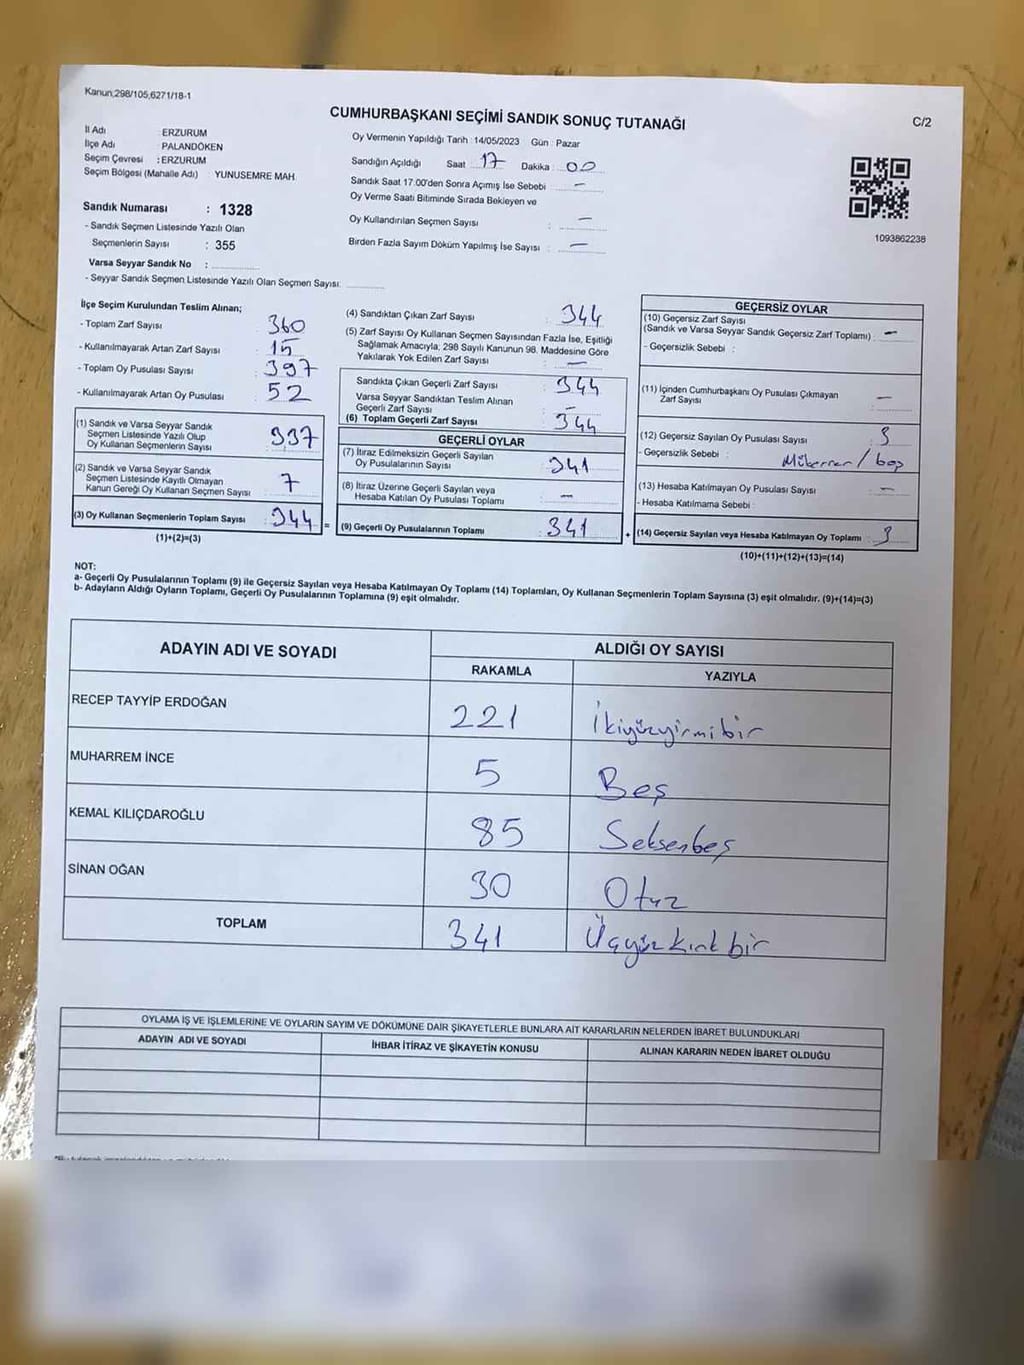 Kanun,298/105,6271/18-1
CUMHURBAŞKANI SEÇİMİ SANDIK SONUÇ TUTANAĞI
C/2
İl Adı : ERZURUM
İlçe Adı : PALANDÖKEN
Seçim Çevresi : ERZURUM
Seçim Bölgesi (Mahalle Adı) YUNUSEMRE MAH.
Sandık Numarası : 1328
- Sandık Seçmen Listesinde Yazılı Olan
Seçmenlerin Sayısı : 355
Varsa Seyyar Sandık No :
- Seyyar Sandık Seçmen Listesinde Yazılı Olan Seçmen Sayısı:
Oy Vermenin Yapıldığı Tarih : 14/05/2023 Gün : Pazar
Sandığın Açıldığı Saat 17 Dakika : 00
Sandık Saat 17:00'den Sonra Açımış İse Sebebi –
Oy Verme Saati Bitiminde Sırada Bekleyen ve
Oy Kullandırılan Seçmen Sayısı : –
Birden Fazla Sayım Döküm Yapılmış İse Sayısı : –
1093862238
İlçe Seçim Kurulundan Teslim Alınan;
- Toplam Zarf Sayısı 360
- Kullanılmayarak Artan Zarf Sayısı 15
- Toplam Oy Pusulası Sayısı 397
- Kullanılmayarak Artan Oy Pusulası 52
(1) Sandık ve Varsa Seyyar Sandık
Seçmen Listesinde Yazılı Olup
Oy Kullanan Seçmenlerin Sayısı 337
(2) Sandık ve Varsa Seyyar Sandık
Seçmen Listesinde Kayıtlı Olmayan
Kanun Gereği Oy Kullanan Seçmen Sayısı 7
(3) Oy Kullanan Seçmenlerin Toplam Sayısı : 344 =
(1)+(2)=(3)
(4) Sandıktan Çıkan Zarf Sayısı : 344
(5) Zarf Sayısı Oy Kullanan Seçmen Sayısından Fazla İse, Eşitliği
Sağlamak Amacıyla, 298 Sayılı Kanunun 98. Maddesine Göre
Yakılarak Yok Edilen Zarf Sayısı : –
Sandıkta Çıkan Geçerli Zarf Sayısı : 344
Varsa Seyyar Sandıktan Teslim Alınan
Geçerli Zarf Sayısı : –
(6) Toplam Geçerli Zarf Sayısı : 344
GEÇERLİ OYLAR
(7) İtiraz Edilmeksizin Geçerli Sayılan
Oy Pusulalarının Sayısı : 341
(8) İtiraz Üzerine Geçerli Sayılan veya
Hesaba Katılan Oy Pusulası Toplamı : –
(9) Geçerli Oy Pusulalarının Toplamı : 341 +
GEÇERSİZ OYLAR
(10) Geçersiz Zarf Sayısı
(Sandık ve Varsa Seyyar Sandık Geçersiz Zarf Toplamı) : –
- Geçersizlik Sebebi :
(11) İçinden Cumhurbaşkanı Oy Pusulası Çıkmayan
Zarf Sayısı : –
(12) Geçersiz Sayılan Oy Pusulası Sayısı : 3
- Geçersizlik Sebebi : / boş
(13) Hesaba Katılmayan Oy Pusulası Sayısı : –
- Hesaba Katılmama Sebebi :
(14) Geçersiz Sayılan veya Hesaba Katılmayan Oy Toplamı : 3
(10)+(11)+(12)+(13)=(14)
NOT:
a- Geçerli Oy Pusulalarının Toplamı (9) ile Geçersiz Sayılan veya Hesaba Katılmayan Oy Toplamı (14) Toplamları, Oy Kullanan Seçmenlerin Toplam Sayısına (3) eşit olmalıdır. (9)+(14)=(3)
b- Adayların Aldığı Oyların Toplamı, Geçerli Oy Pusulalarının Toplamına (9) eşit olmalıdır.
ADAYIN ADI VE SOYADI ALDIĞI OY SAYISI
RAKAMLA YAZIYLA
RECEP TAYYİP ERDOĞAN 221 İkiyüzyirmibir
MUHARREM İNCE 5 Beş
KEMAL KILIÇDAROĞLU 85 Seksenbeş
SİNAN OĞAN 30 Otuz
TOPLAM 341 Üçyüz kırk bir
OYLAMA İŞ VE İŞLEMLERİNE VE OYLARIN SAYIM VE DÖKÜMÜNE DAİR ŞİKAYETLERLE BUNLARA AİT KARARLARIN NELERDEN İBARET BULUNDUKLARI
ADAYIN ADI VE SOYADI İHBAR İTİRAZ VE ŞİKAYETİN KONUSU ALINAN KARARIN NEDEN İBARET OLDUĞU